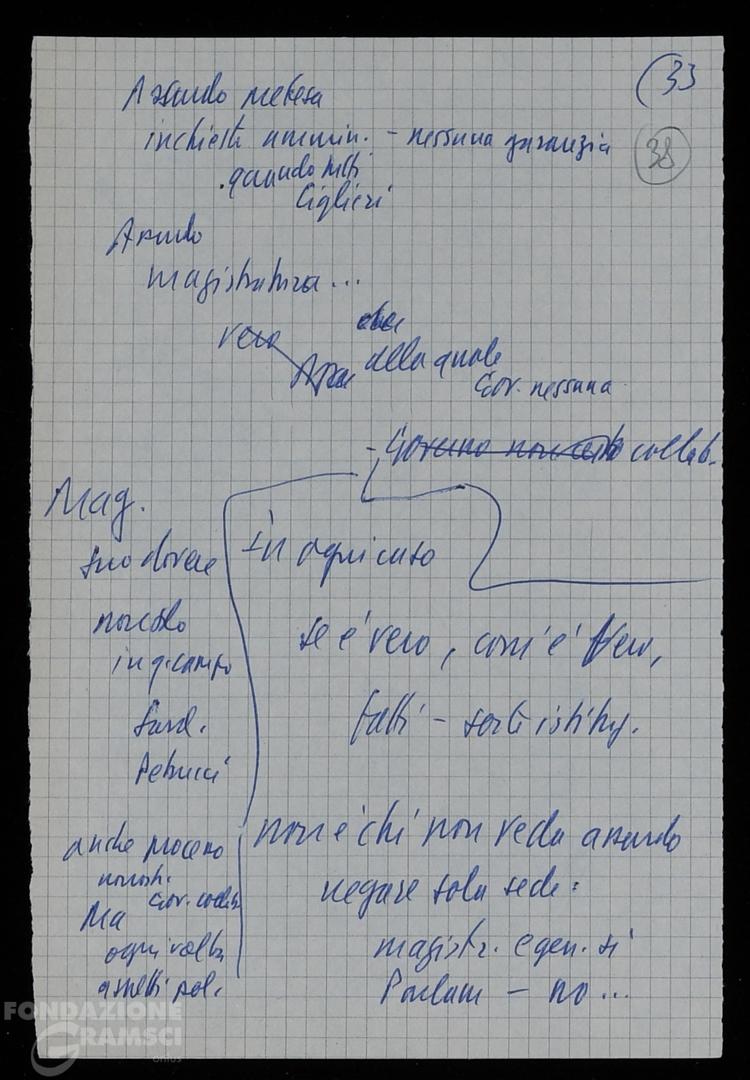 (33
38
Assurdo pretesa
inchiesta ammin. - nessuna garanzia
quando tutti
Ciglieri
Assurdo
magistratura...
vera
della quale
Gov. nessuna
- Governo non collab.
Mag.
suo dovere
non solo
in q. campo
Sard.
Petrucci
anche processo
nonost.
Ma
ogni volta
aspetti pol.
in ogni caso
se è vero, com'è vero,
fatti - sorti istituz.
non è chi non veda assurdo
negare sola sede:
magistr. e gen. si
Parlam - no...
FONDAZIONE
GRAMSCI
onlus